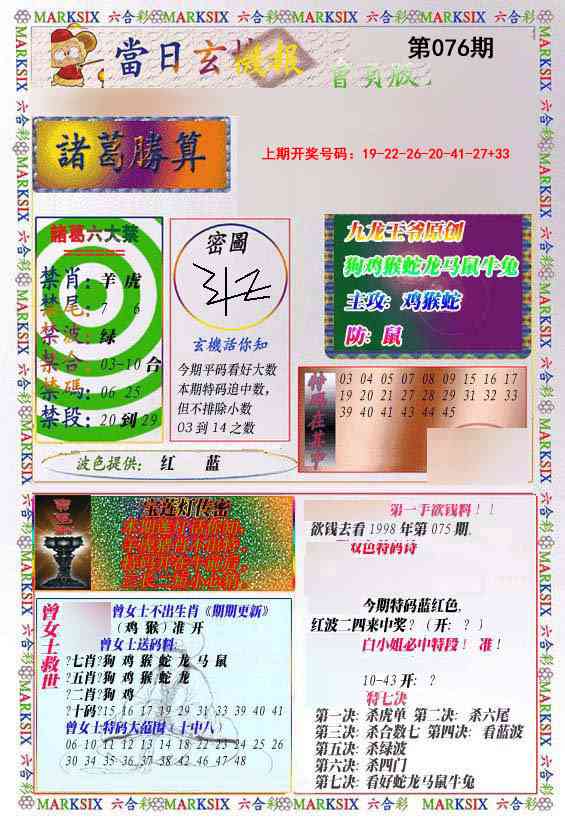 MARKSIX 六合彩 MARKSIX 六合彩 MARKSIX 六合彩 MARKSIX 六合彩
當日玄機報
會員版
第076期
諸葛勝算
上期开奖号码：19-22-26-20-41-27+33
諸葛六大禁
禁肖：羊 虎
禁尾：7 6
禁波：绿
禁合：03-10合
禁碼：06 25
禁段：20到29
密圖
玄機话你知
今期平码看好大数
本期特码追中数，
但不排除小数
03到14之数
九龙王爷原创
狗鸡猴蛇龙马鼠牛兔
主攻：鸡猴蛇
防：鼠
特码在其中
03 04 05 07 08 09 15 16 17
19 20 21 27 28 29 31 32 33
39 40 41 43 44 45
波色提供：红 蓝
宝莲灯传密
第一手欲钱料！！
欲钱去看1998年第075期.
双色特码诗
今期特码蓝红色.
红波二四来中奖？（开：？）
白小姐必中特段！准！
10-43开：？
特七决
第一决：杀虎单 第二决：杀六尾
第三决：杀合数七 第四决：看蓝波
第五决：杀绿波
第六决：杀四门
第七决：看好蛇龙马鼠牛兔
曾女士救世
曾女士不出生肖《期期更新》
（鸡 猴）准 开
曾女士送码料:
?七肖?狗 鸡 猴 蛇 龙 马 鼠
?五肖?狗 鸡 猴 蛇 龙
?二肖?狗 鸡
?十码?15 16 17 19 29 31 33 39 40 41
曾女士特码大范围（十中八）
06 10 11 12 13 14 18 22 23 24 25 26
30 34 35 36 37 38 42 46 47 48
MARKSIX 六合彩 MARKSIX 六合彩 MARKSIX 六合彩 MARKSIX 六合彩